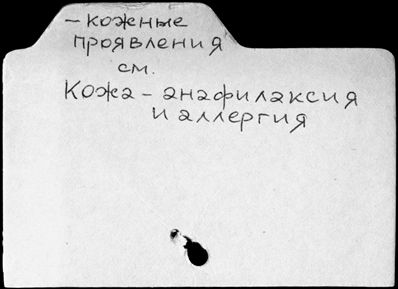 – кожные
проявления
см.
Кожа – анафилаксия
и аллергия